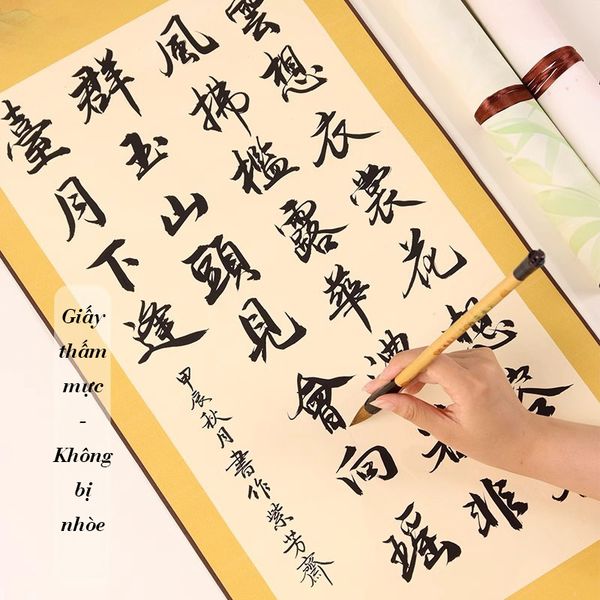 雲想衣裳花想容
風拂檻露華濃若非
群玉山頭見會向瑤
臺月下逢
甲辰秋月書作紫芳齋
Giấy
thấm
mực
-
Không
bị
nhòe